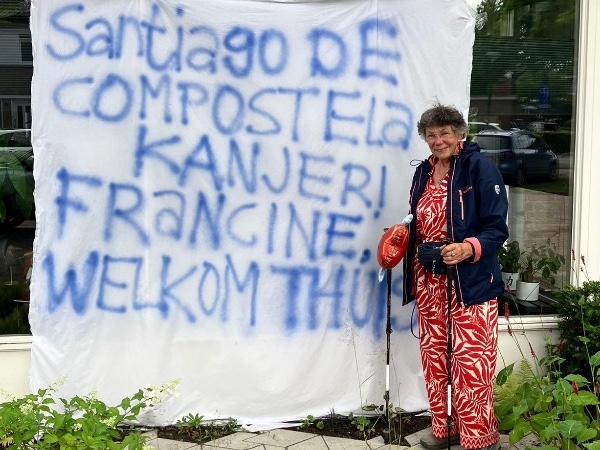 Santiago DE
COMPOSTELa
KANJER!
FRANCINE,
WELKOM THUIS